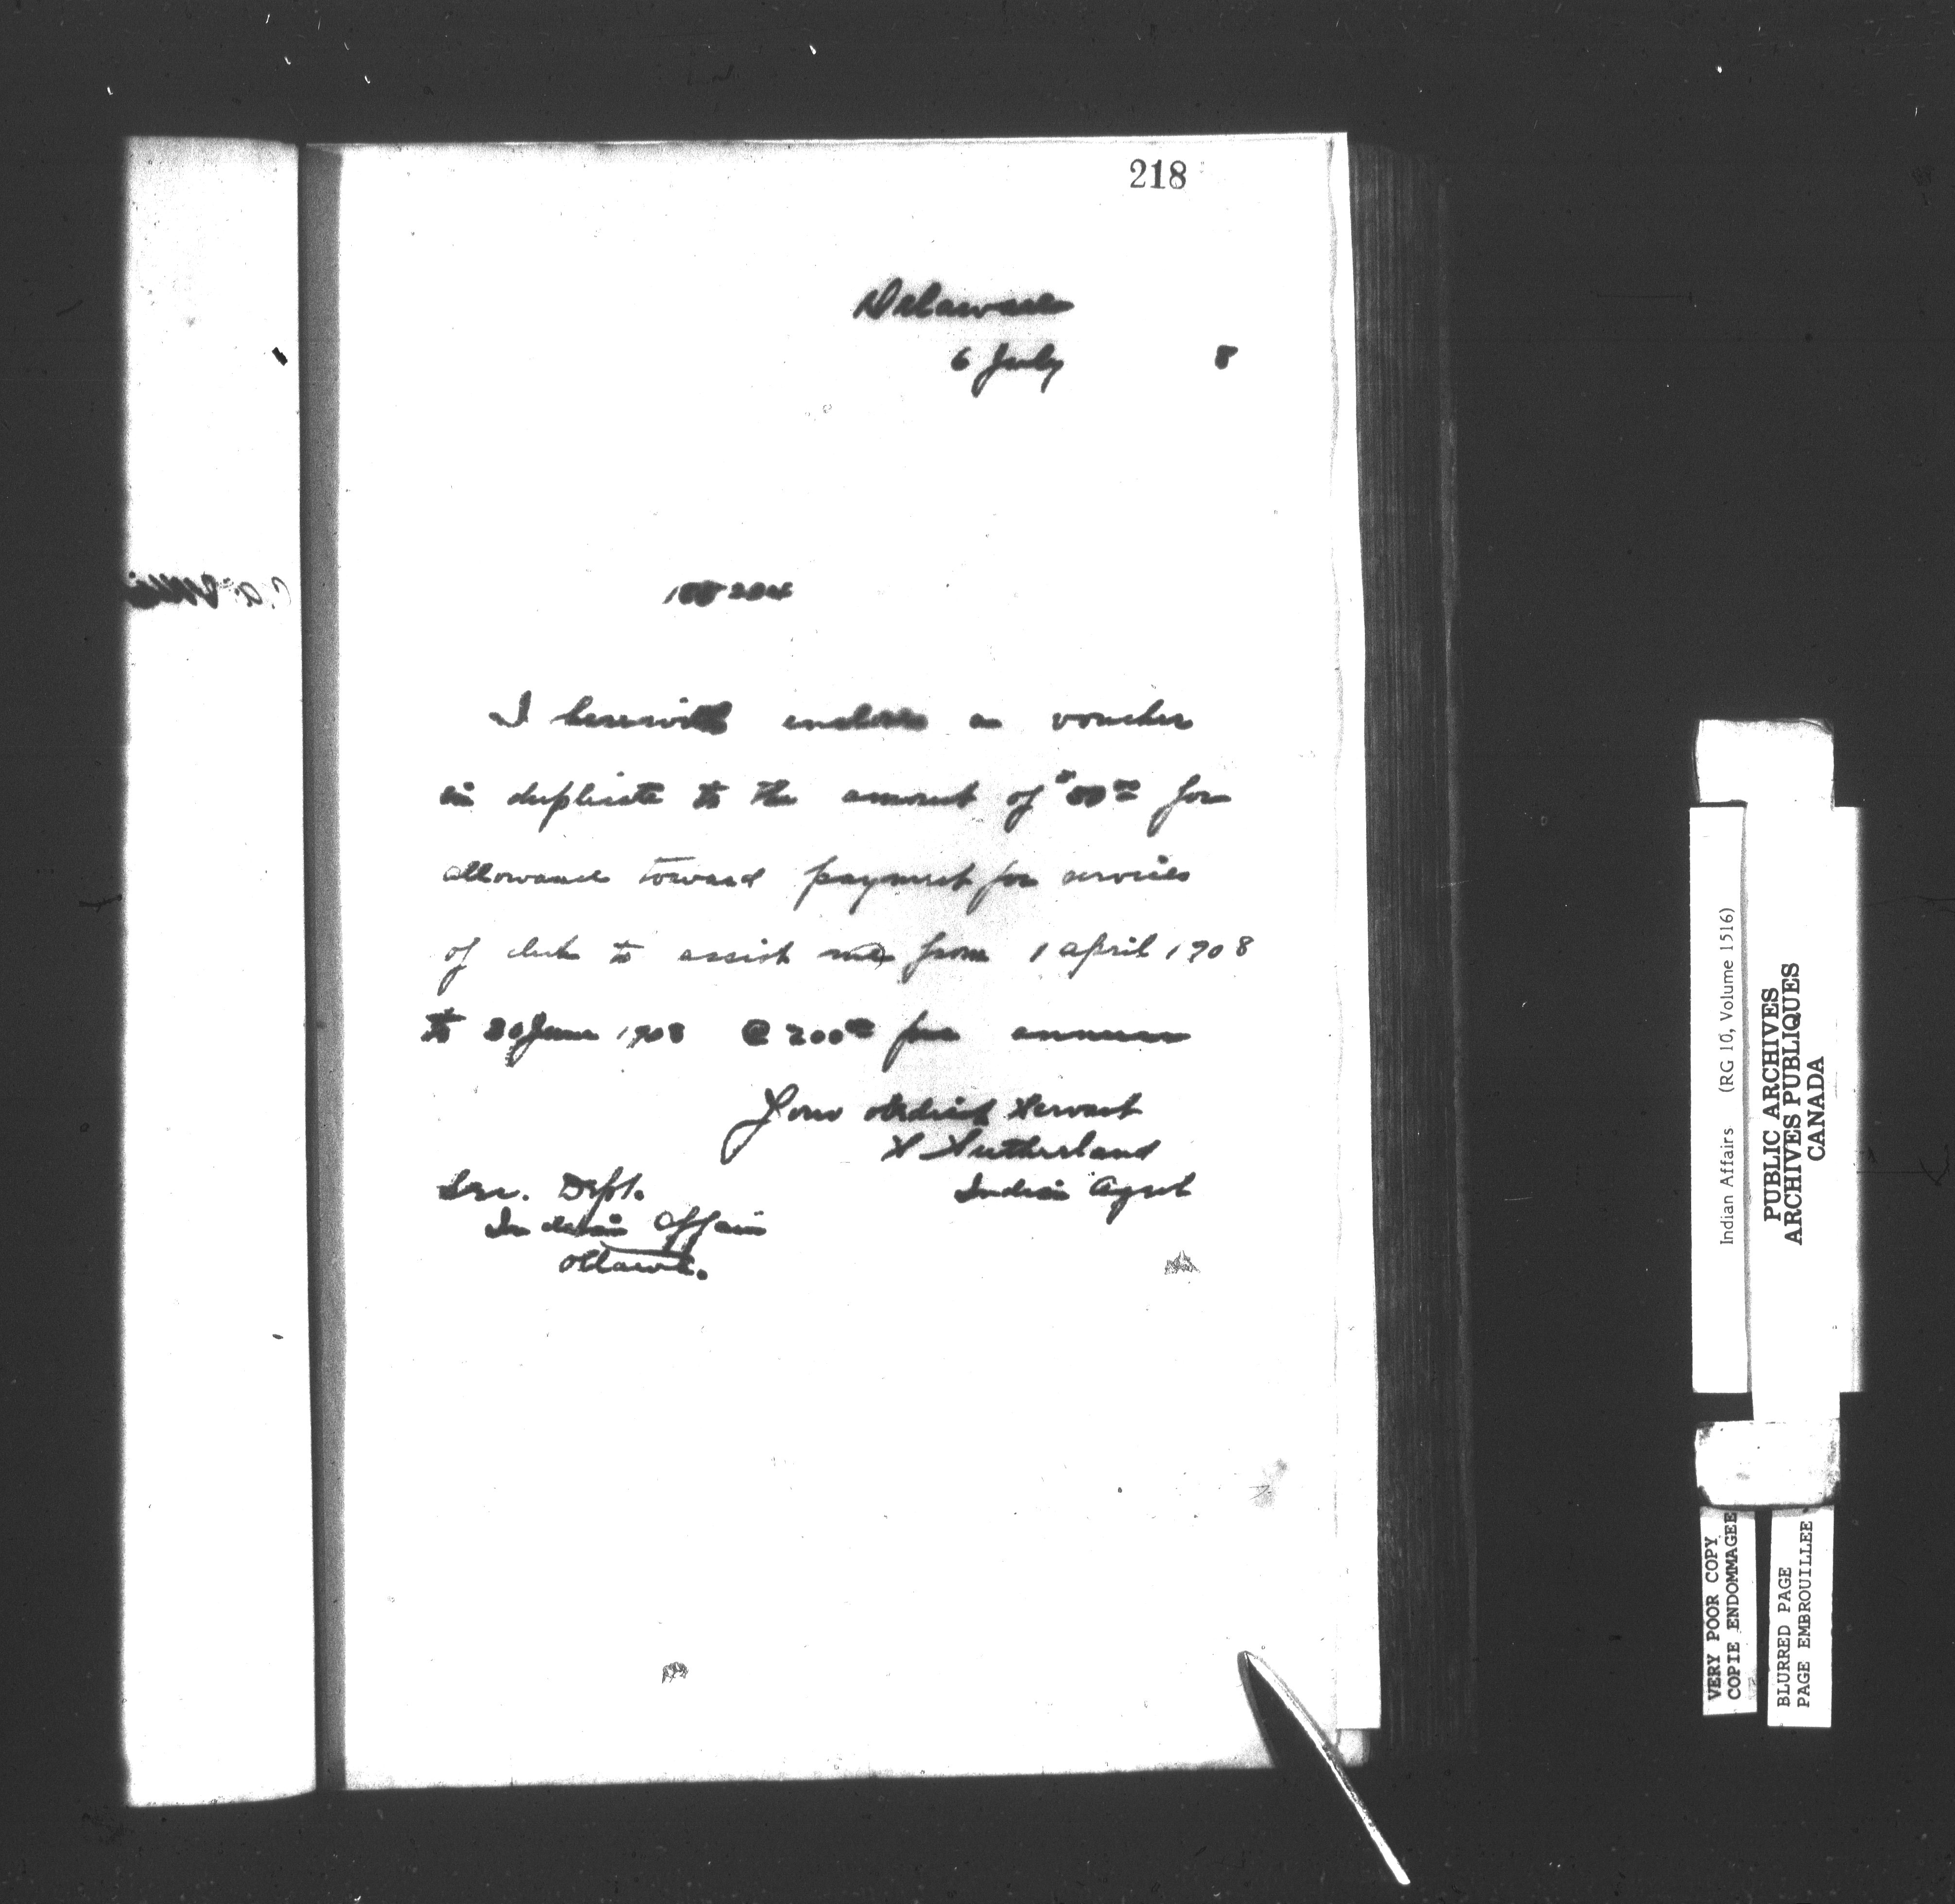 218
Delaware
6 July 8
I herewith enclose a voucher
in duplicate to the amount of for
allowance toward payment for services
of clerk to assist me from 1 April 1908
to 30 June 1908 @ 200 00 per annum
Your obedient Servant
S Sutherland
Indian Agent
Sec. Dept.
Indian Affairs
Ottawa.
Indian Affairs (RG 10, Volume 1516)
PUBLIC ARCHIVES
ARCHIVES PUBLIQUES
CANADA
VERY POOR COPY
COPIE ENDOMMAGEE
BLURRED PAGE
PAGE EMBROUILLEE